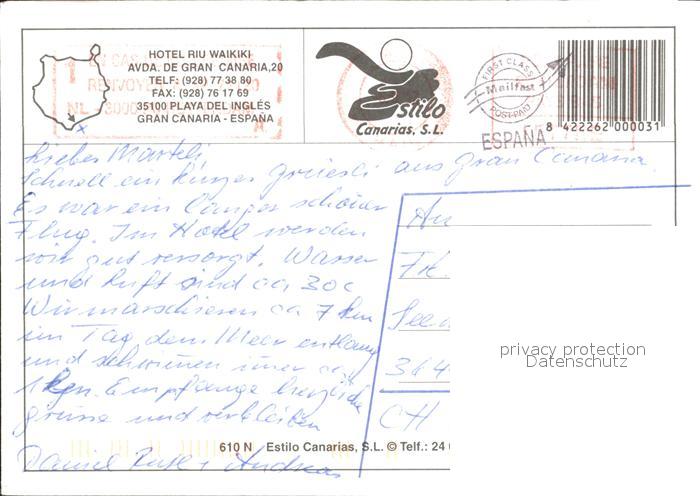 HOTEL RIU WAIKIKI
AVDA. DE GRAN CANARIA,20
TELF: (928) 77 38 80
FAX: (928) 76 17 69
35100 PLAYA DEL INGLÉS
GRAN CANARIA - ESPAÑA
Estilo
Canarias, S.L.
FIRST CLASS
Mailfast
POST PAID
ESPAÑA
8 422262 000031
Lieber
Schnell ein kurzer aus Gran Canaria.
Es war ein langer schöner
Flug. Im Hotel werden
wir gut versorgt. Wasser
und Luft sind ca 30c
Wir marschieren ca 7 km
im Tag dem Meer entlang
und schwimen imer ca
1 km. Empfange herzliche
grüsse und verbleiben
Daniel + Andreas
An
CH
privacy protection
Datenschutz
610 N Estilo Canarias, S.L. © Telf.: 24